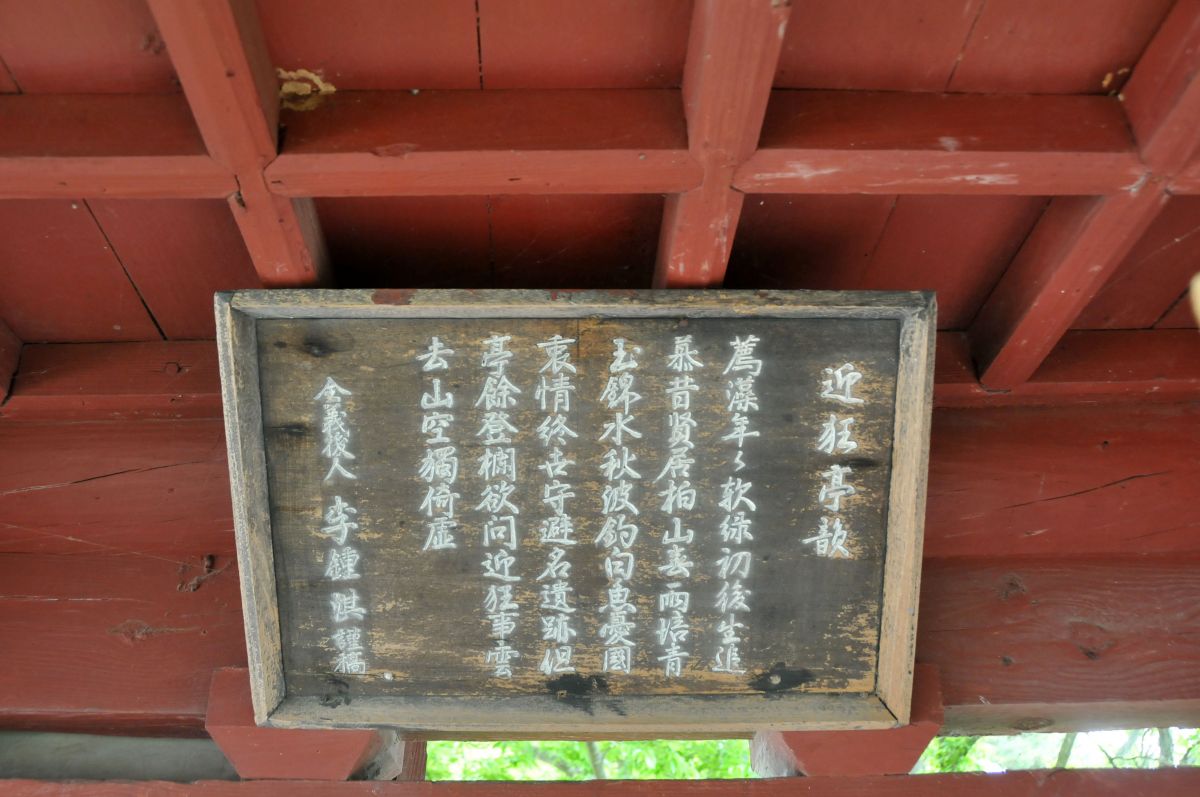 近狂亭韵
薦藻年々軟綠初後生追
慕昔賢居柏山春雨培青
玉錦水秋波釣白魚憂國
衷情終古守避名遺跡但
亭餘登欄欲問近狂事雲
去山空獨倚虛
全義後人 李鍾淇謹稿